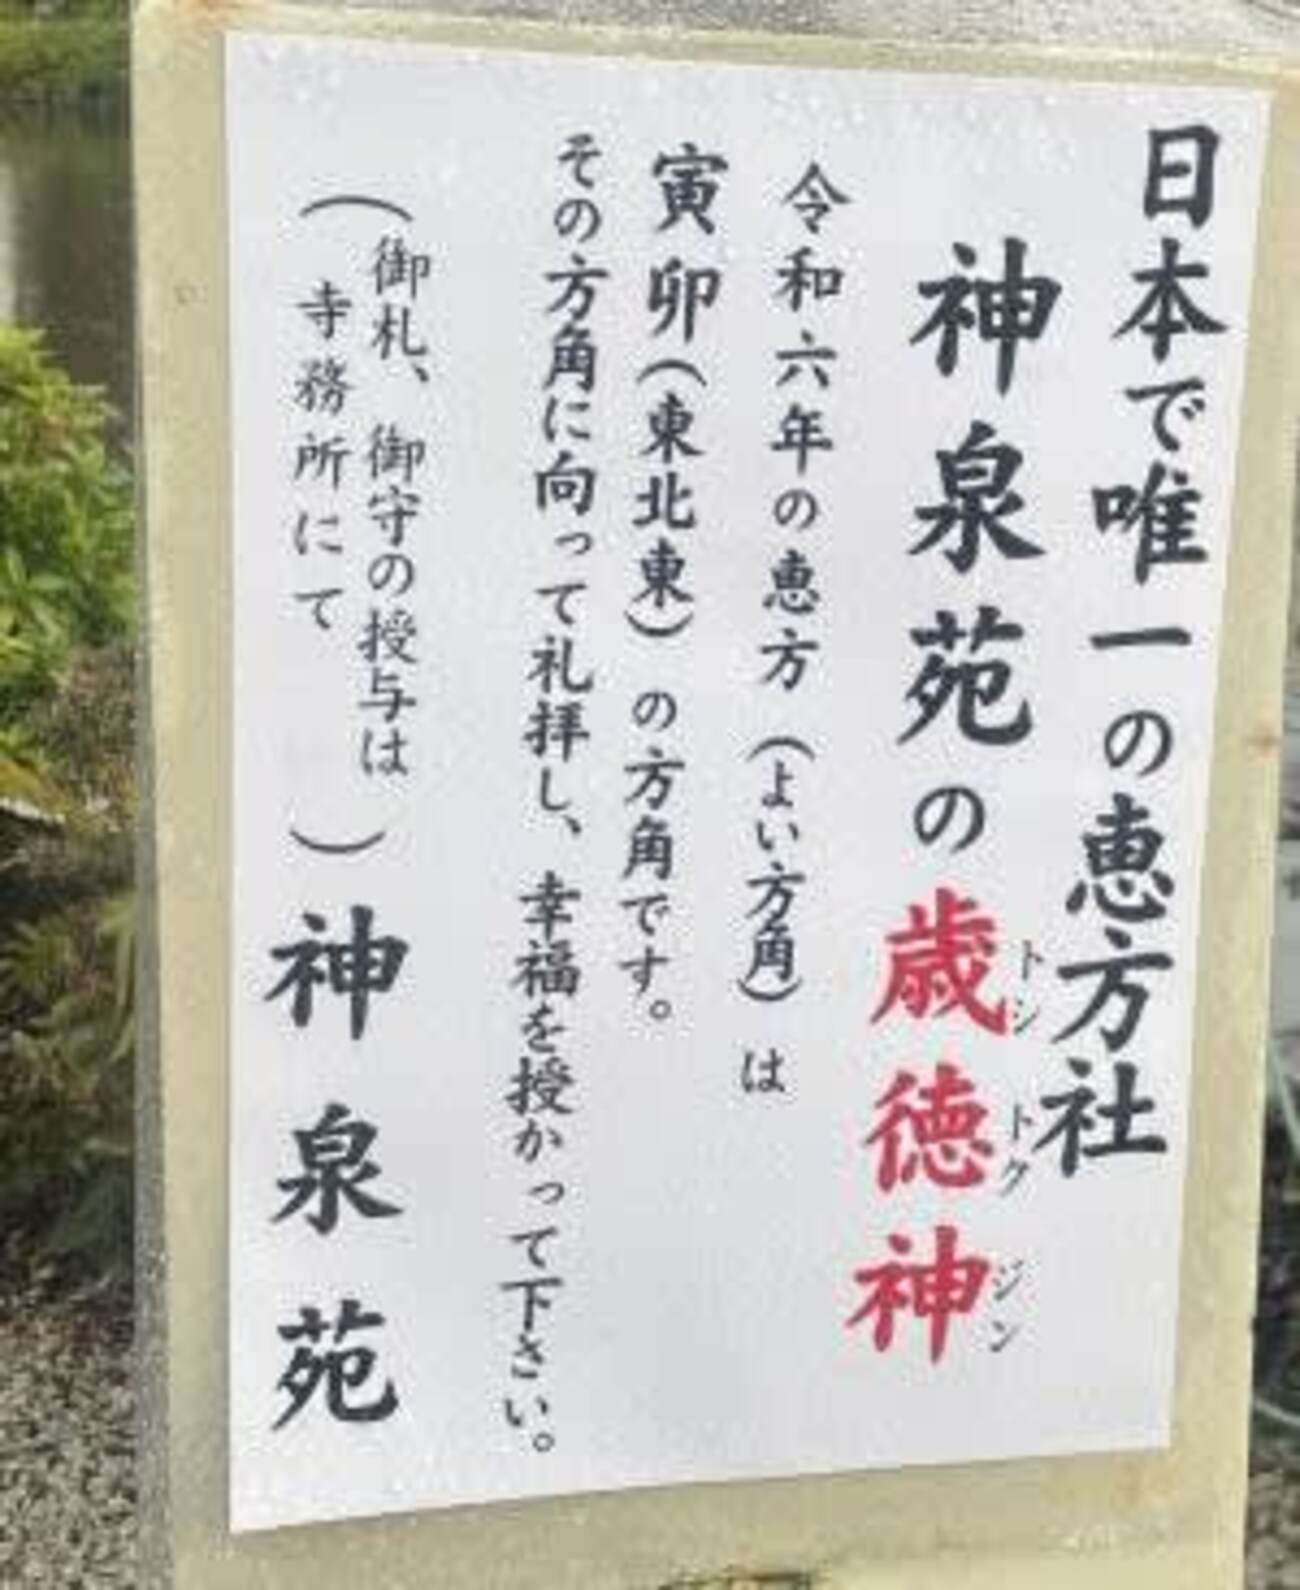 日本で唯一の恵方社
神泉苑の歳徳神
トシトクジン
令和六年の恵方(よい方角)は
寅卯(東北東)の方角です。
その方角に向って礼拝し、幸福を授かって下さい。
(御札、御守の授与は
寺務所にて)
神泉苑